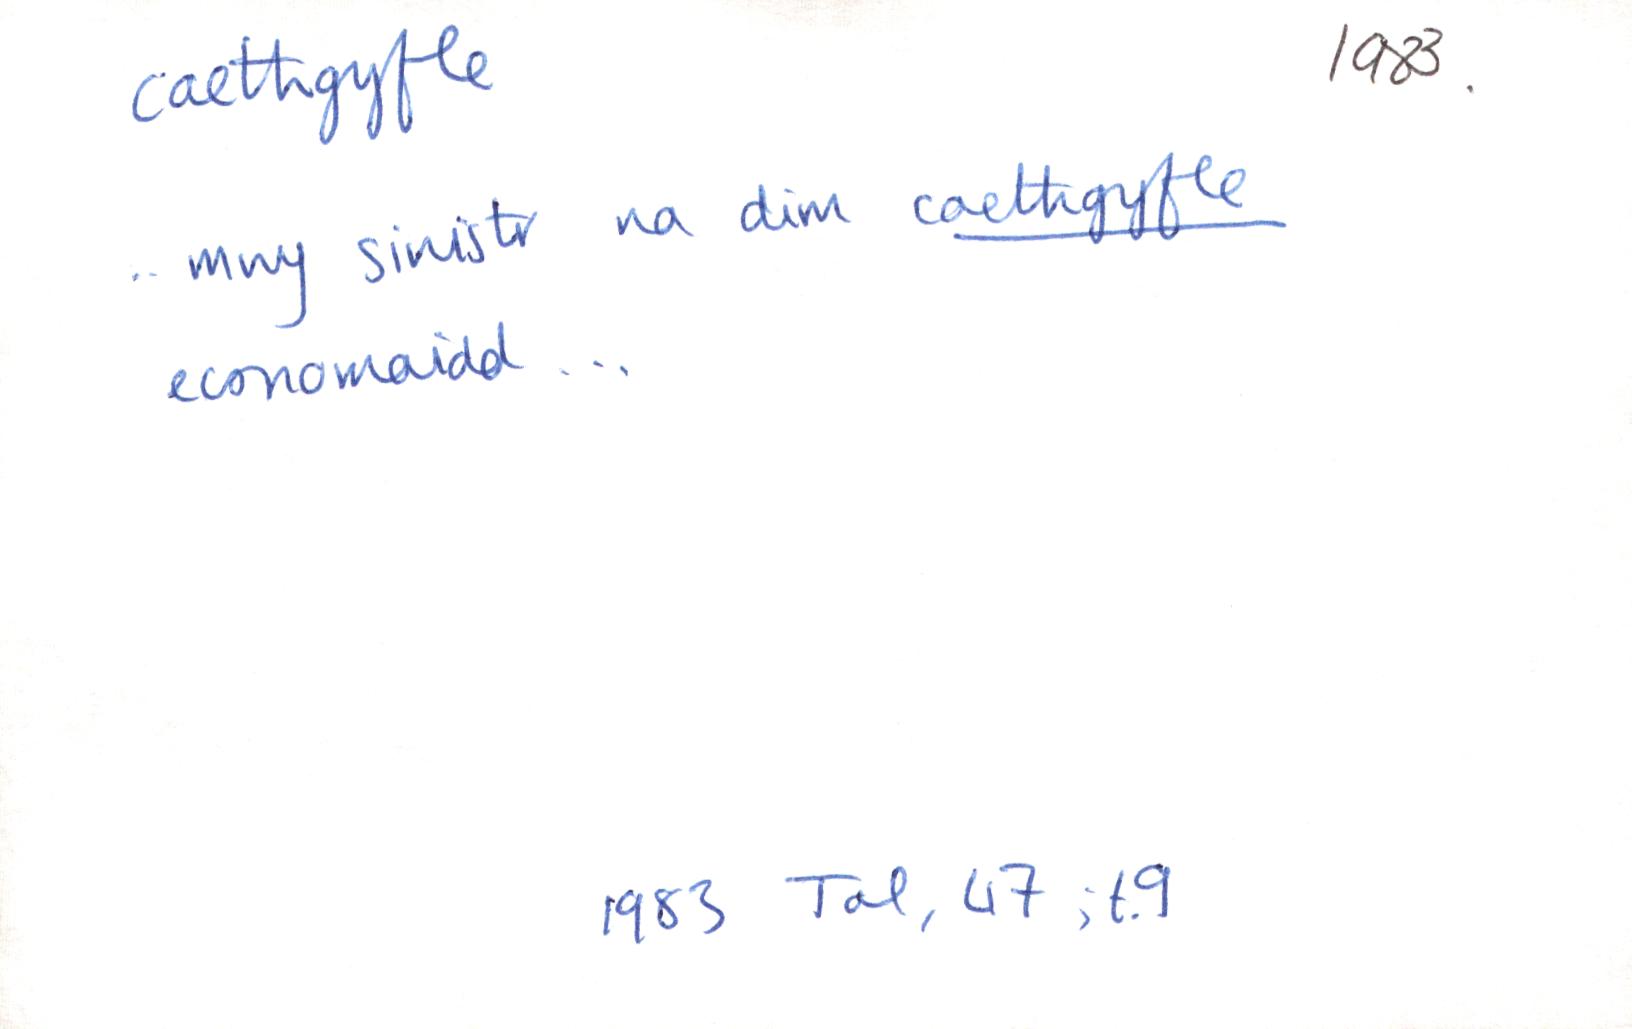 caethgyfle 1983.
.. mwy sinistr na dim caethgyfle
economaidd ...
1983 Tal, 47 ; t.9